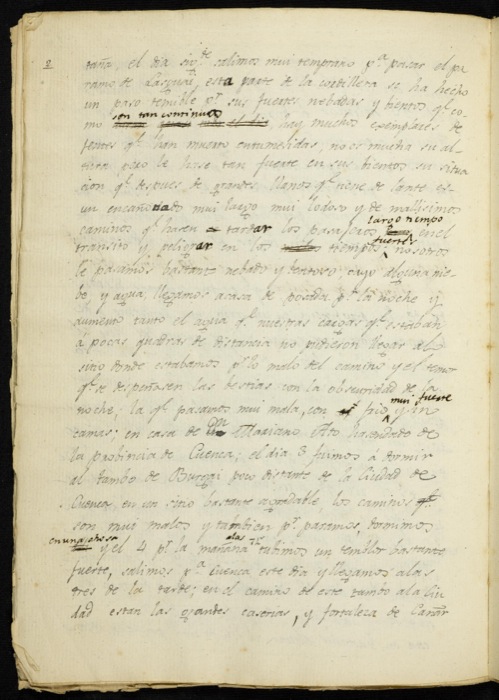 2
taña, el dia sig.te salimos mui temprano p.a pasar el pa
ramo de Lasguai, esta parte de la cordillera se ha hecho
un paso temible p.r sus fuertes nebadas y bientos q.e co-
mo son tan continuos hay muchos exemplares de
gentes q.e han muerto entumesidas, no es mucha su al
tura pero le hase tan fuerte en sus bientos su situa
cion q.e despues de grandes llanos q.e tiene de lante es
un encañonado mui largo mui lodoso y de malisimos
caminos q.e haren tardar los pasajeros largo tiempo en el
transito y peligrar en los tiempos fuertes; nosotros
le pasamos bastante nebado y bentoso cayo alguna nie-
be, y agua, llegamos acasa de posada p.r la noche y
aumento tanto el agua q.e nuestras cargas q.e estaban
a pocas quadras de distancia no pudieron llegar al
sitio donde estabamos p.r lo malo del camino y el temor
q.e se despeñasen las bestias con la obscuridad de la
noche; la q.e pasamos mui mala, con frio mui fuerte y sin
camas; en casa de Dn Mariano Asto hasendado de
la probincia de Cuenca; el dia 3 fuimos à dormir
al tambo de Burgai poco distante de la Ciudad de
Cuenca, en un sitio bastante agradable los caminos
son mui malos y tambien p.r paramos, dormimos
en una chosa y el 4 p.r la mañana a las tubimos un temblor bastante
fuerte, salimos p.a Cuenca este dia y llegamos alas
tres de la tarde; en el camino de este tambo ala Ciu
dad estan las grandes caserias, y fortaleza de Cañar